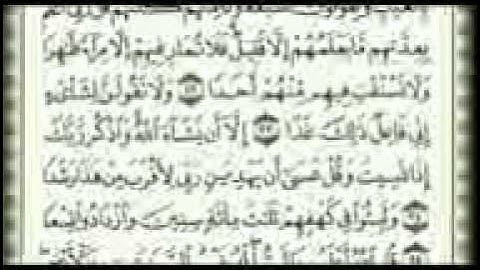 بِعِدَّتِهِم مَّا يَعْلَمُهُمْ إِلَّا قَلِيلٌ فَلَا تُمَارِ فِيهِمْ إِلَّا مِرَآءً ظَٰهِرًا
وَلَا تَسْتَفْتِ فِيهِم مِّنْهُمْ أَحَدًا ۝ وَلَا تَقُولَنَّ لِشَا۟ىْءٍ
إِنِّى فَاعِلٌ ذَٰلِكَ غَدًا ۝ إِلَّآ أَن يَشَآءَ ٱللَّهُ وَٱذْكُر رَّبَّكَ
إِذَا نَسِيتَ وَقُلْ عَسَىٰٓ أَن يَهْدِيَنِ رَبِّى لِأَقْرَبَ مِنْ هَٰذَا رَشَدًا
۝ وَلَبِثُوا۟ فِى كَهْفِهِمْ ثَلَٰثَ مِا۟ئَةٍ سِنِينَ وَٱزْدَادُوا۟ تِسْعًا